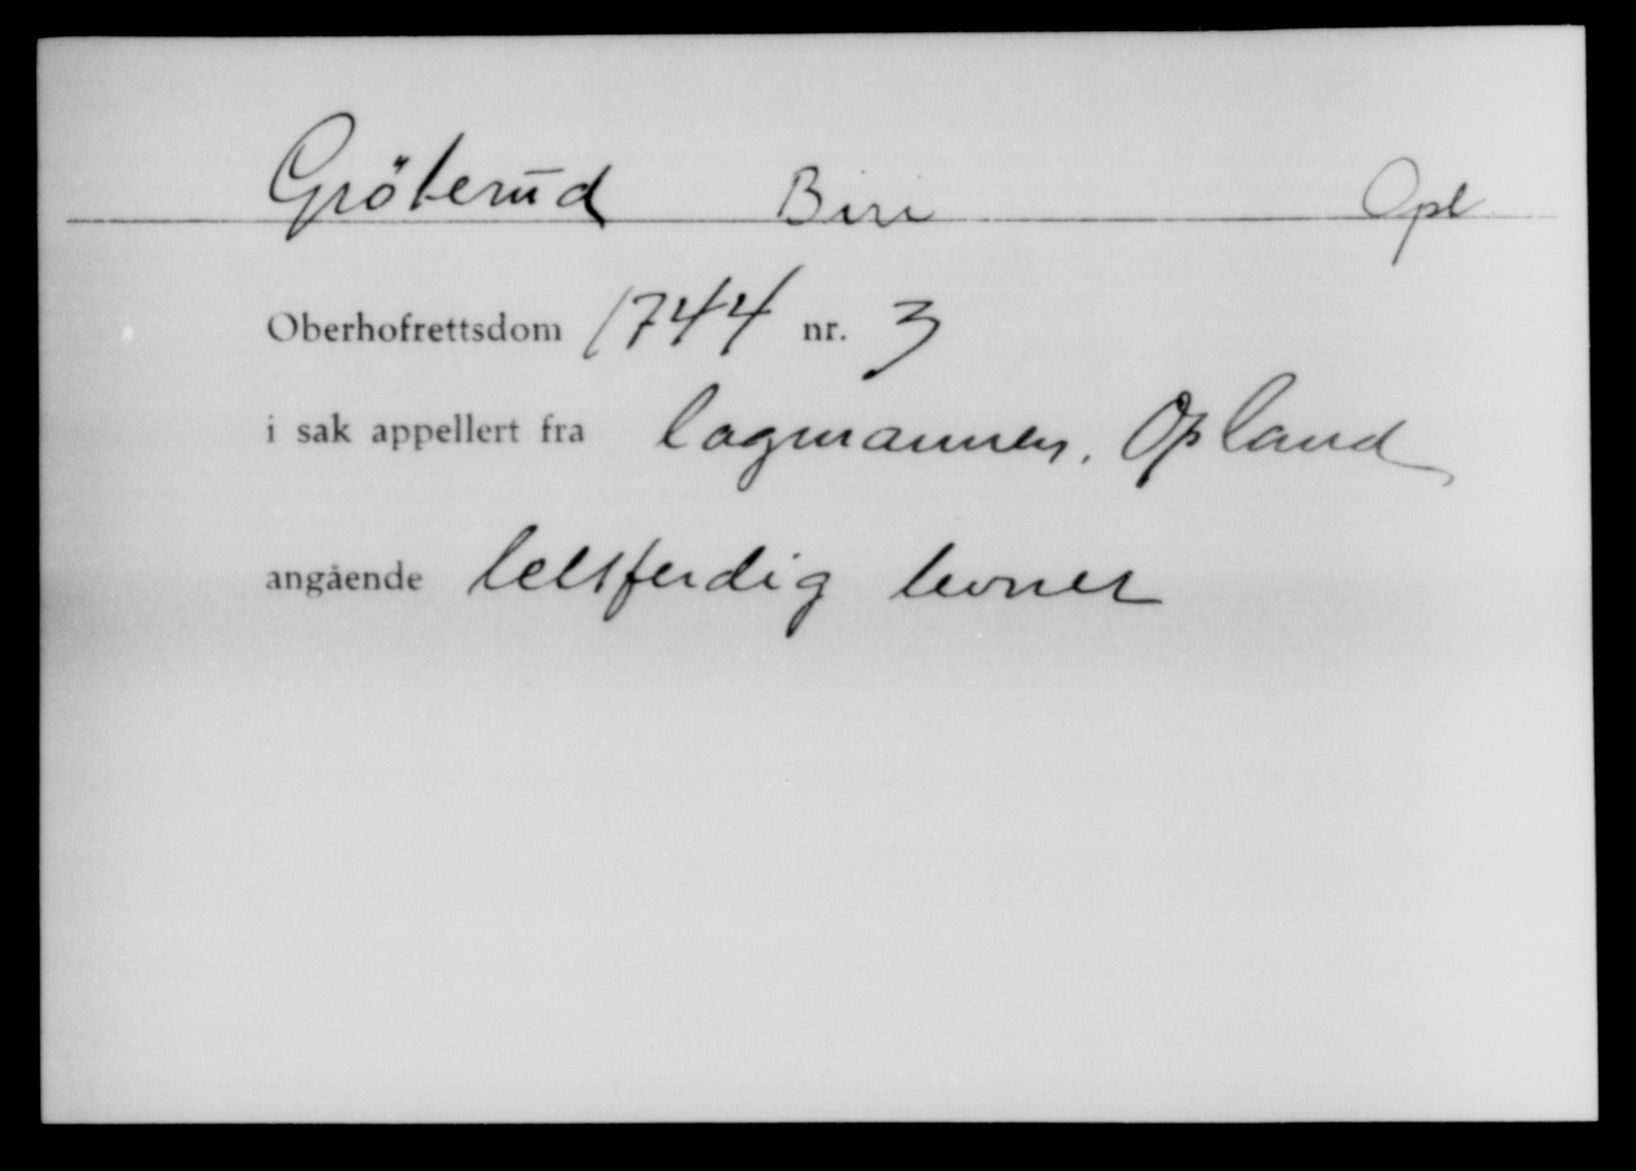 Gröterud Biri Opl
Oberhofrettsdom 1744 nr. 3
i sak appellert fra lagmannen, Opland
angående lettferdig levnet